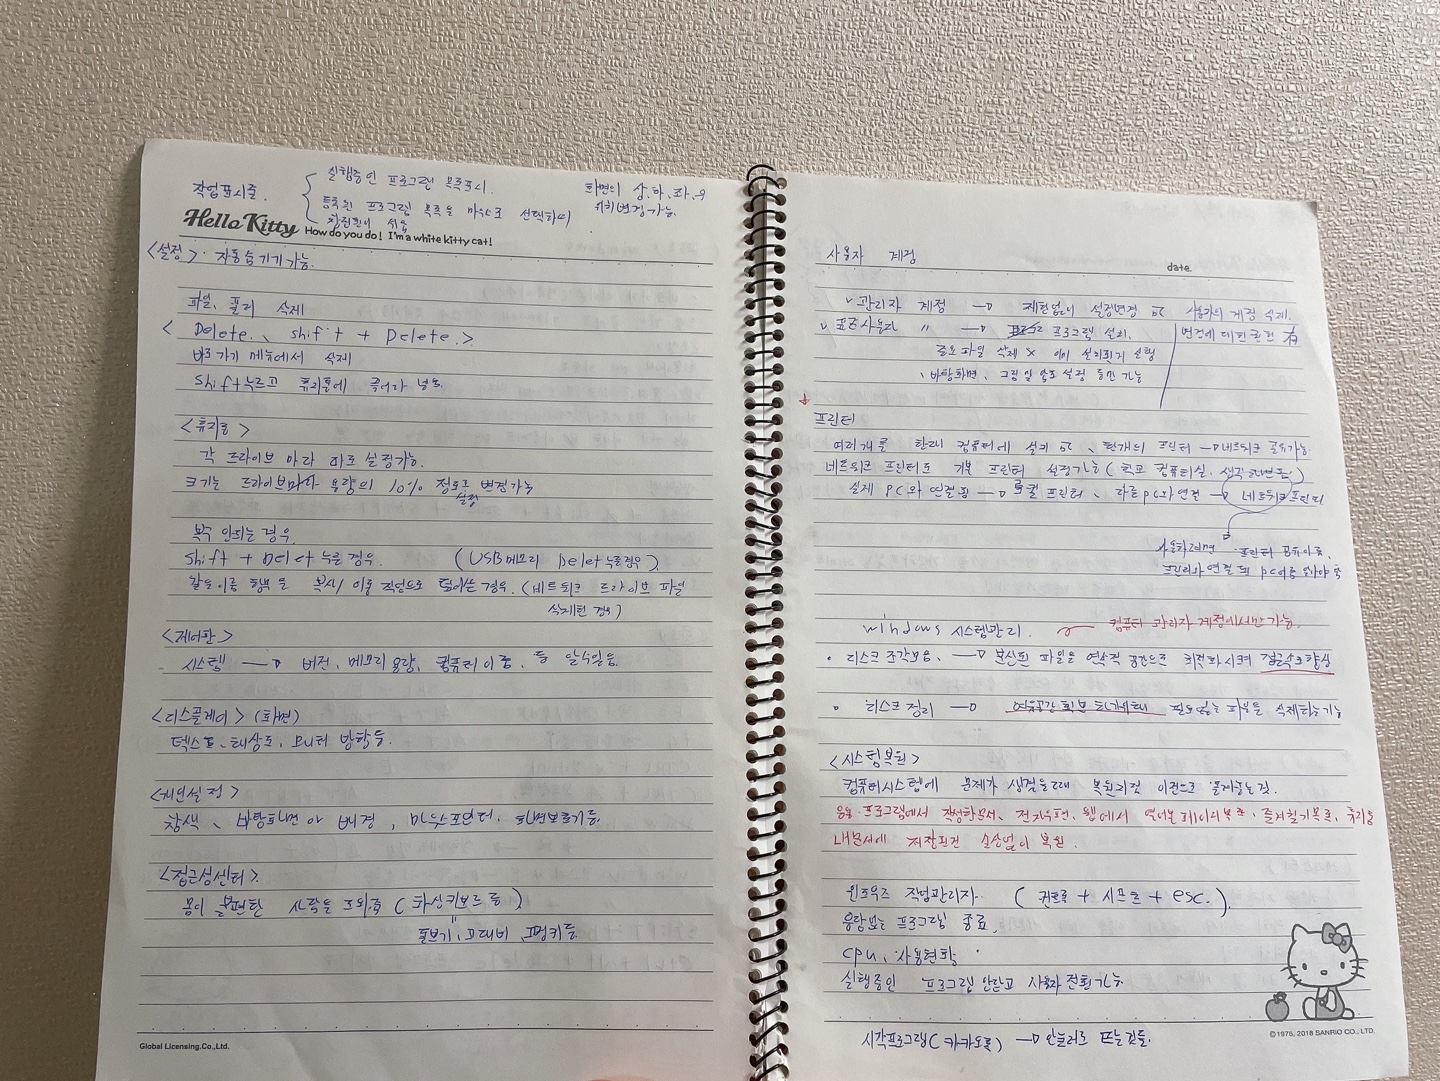 작업표시줄
실행중인 프로그램 목록표시.
등록된 프로그램 목록을 마우스로 선택하여
창전환이 쉬움
화면의 상.하.좌.우
위치변경가능.
Hello Kitty How do you do! I'm a white kitty cat!
<설정> · 자동숨기기 가능.
파일, 폴더 삭제
< Delete、 shift + Delete. >
바로가기 메뉴에서 삭제
shift누르고 휴지통에 끌어다 넣음
<휴지통>
각 드라이브 마다 따로 설정가능.
크기는 드라이브마다 용량의 10% 정도로 변경가능
설정
복구 안되는 경우.
shift + Delet 누를 경우. (USB메모리 Delet 누를경우)
같은이름 항목을 복사/ 이동 작업으로 덮어쓰는 경우. (네트워크 드라이브 파일
삭제된 경우)
<제어판>
시스템 → 버전, 메모리 용량, 컴퓨터 이름, 등 알수있음.
<디스플레이> (화면)
텍스트, 해상도, 모니터 방향등.
<개인설정>
창색、 바탕화면 의 배경, 마우스포인터. 화면보호기등.
<접근성센터>
몸이 불편한 사람을 도와줌 (화상키보드 등)
돋보기, 고대비, 고정키등.
Global Licensing.Co.,Ltd.
사용자 계정
date.
관리자 계정 → 제한없이 설정변경 or 사용자의 계정 삭제.
표준사용자 〃 → 프로그램 설치. 변경에 대한 권한 有
중요 파일 삭제 X 이미 설치됫기 실행
바탕화면、 그림 및 암호 설정 등만 가능
프린터
여러개를 한대 컴퓨터에 설치 or, 한개의 프린터 → 네트워크 공유가능.
네트워크 프린터도 기본 프린터 설정가능 (학교 컴퓨터실. 생각하면됨.)
실제 PC와 연결됨 → 로컬 프린터、 다른pc와 연결 → 네트워크프린터
사용하려면 프린터 공유이름,
프린터와 연결된 PC이름 알아야 함
windows 시스템관리. 컴퓨터 관리자 계정에서만 가능.
· 디스크 조각모음、 → 분산된 파일을 연속적 공간으로 최적화시켜 접근속도향상
· 디스크 정리 → 필요없는 파일을 삭제하는기능
<시스템복원>
컴퓨터시스템에 문제가 생겼을때 복원지점 이전으로 돌려놓는것.
응용 프로그램에서 작성한문서, 전자우편, 웹에서 열어본 페이지목록, 즐겨찾기목록, 휴지통
내문서에 저장된건 손상없이 복원.
윈도우즈 작업관리자. (컨트롤 + 시프트 + esc.)
응답없는 프로그램 종료.
cpu、사용현황
실행중인 프로그램 안닫고 사용자 전환가능
시작프로그램(카카오톡) → 안눌러도 뜨는것들.
©1976, 2018 SANRIO CO., LTD.